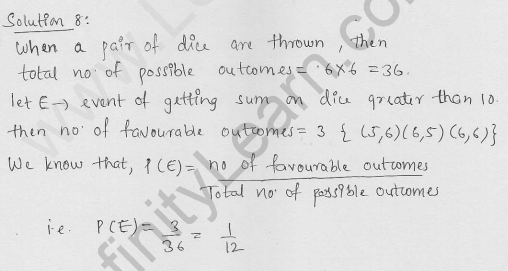 Solution 8:
When a pair of dice are thrown, then
total no. of possible outcomes = 6×6 = 36.
let E → event of getting sum on dice greater than 10.
then no. of favourable outcomes = 3 { (5,6) (6,5) (6,6) }
We know that, P(E) = no of favourable outcomes
Total no. of possible outcomes
i.e. P(E) = 3/36 = 1/12
finityLearn.com